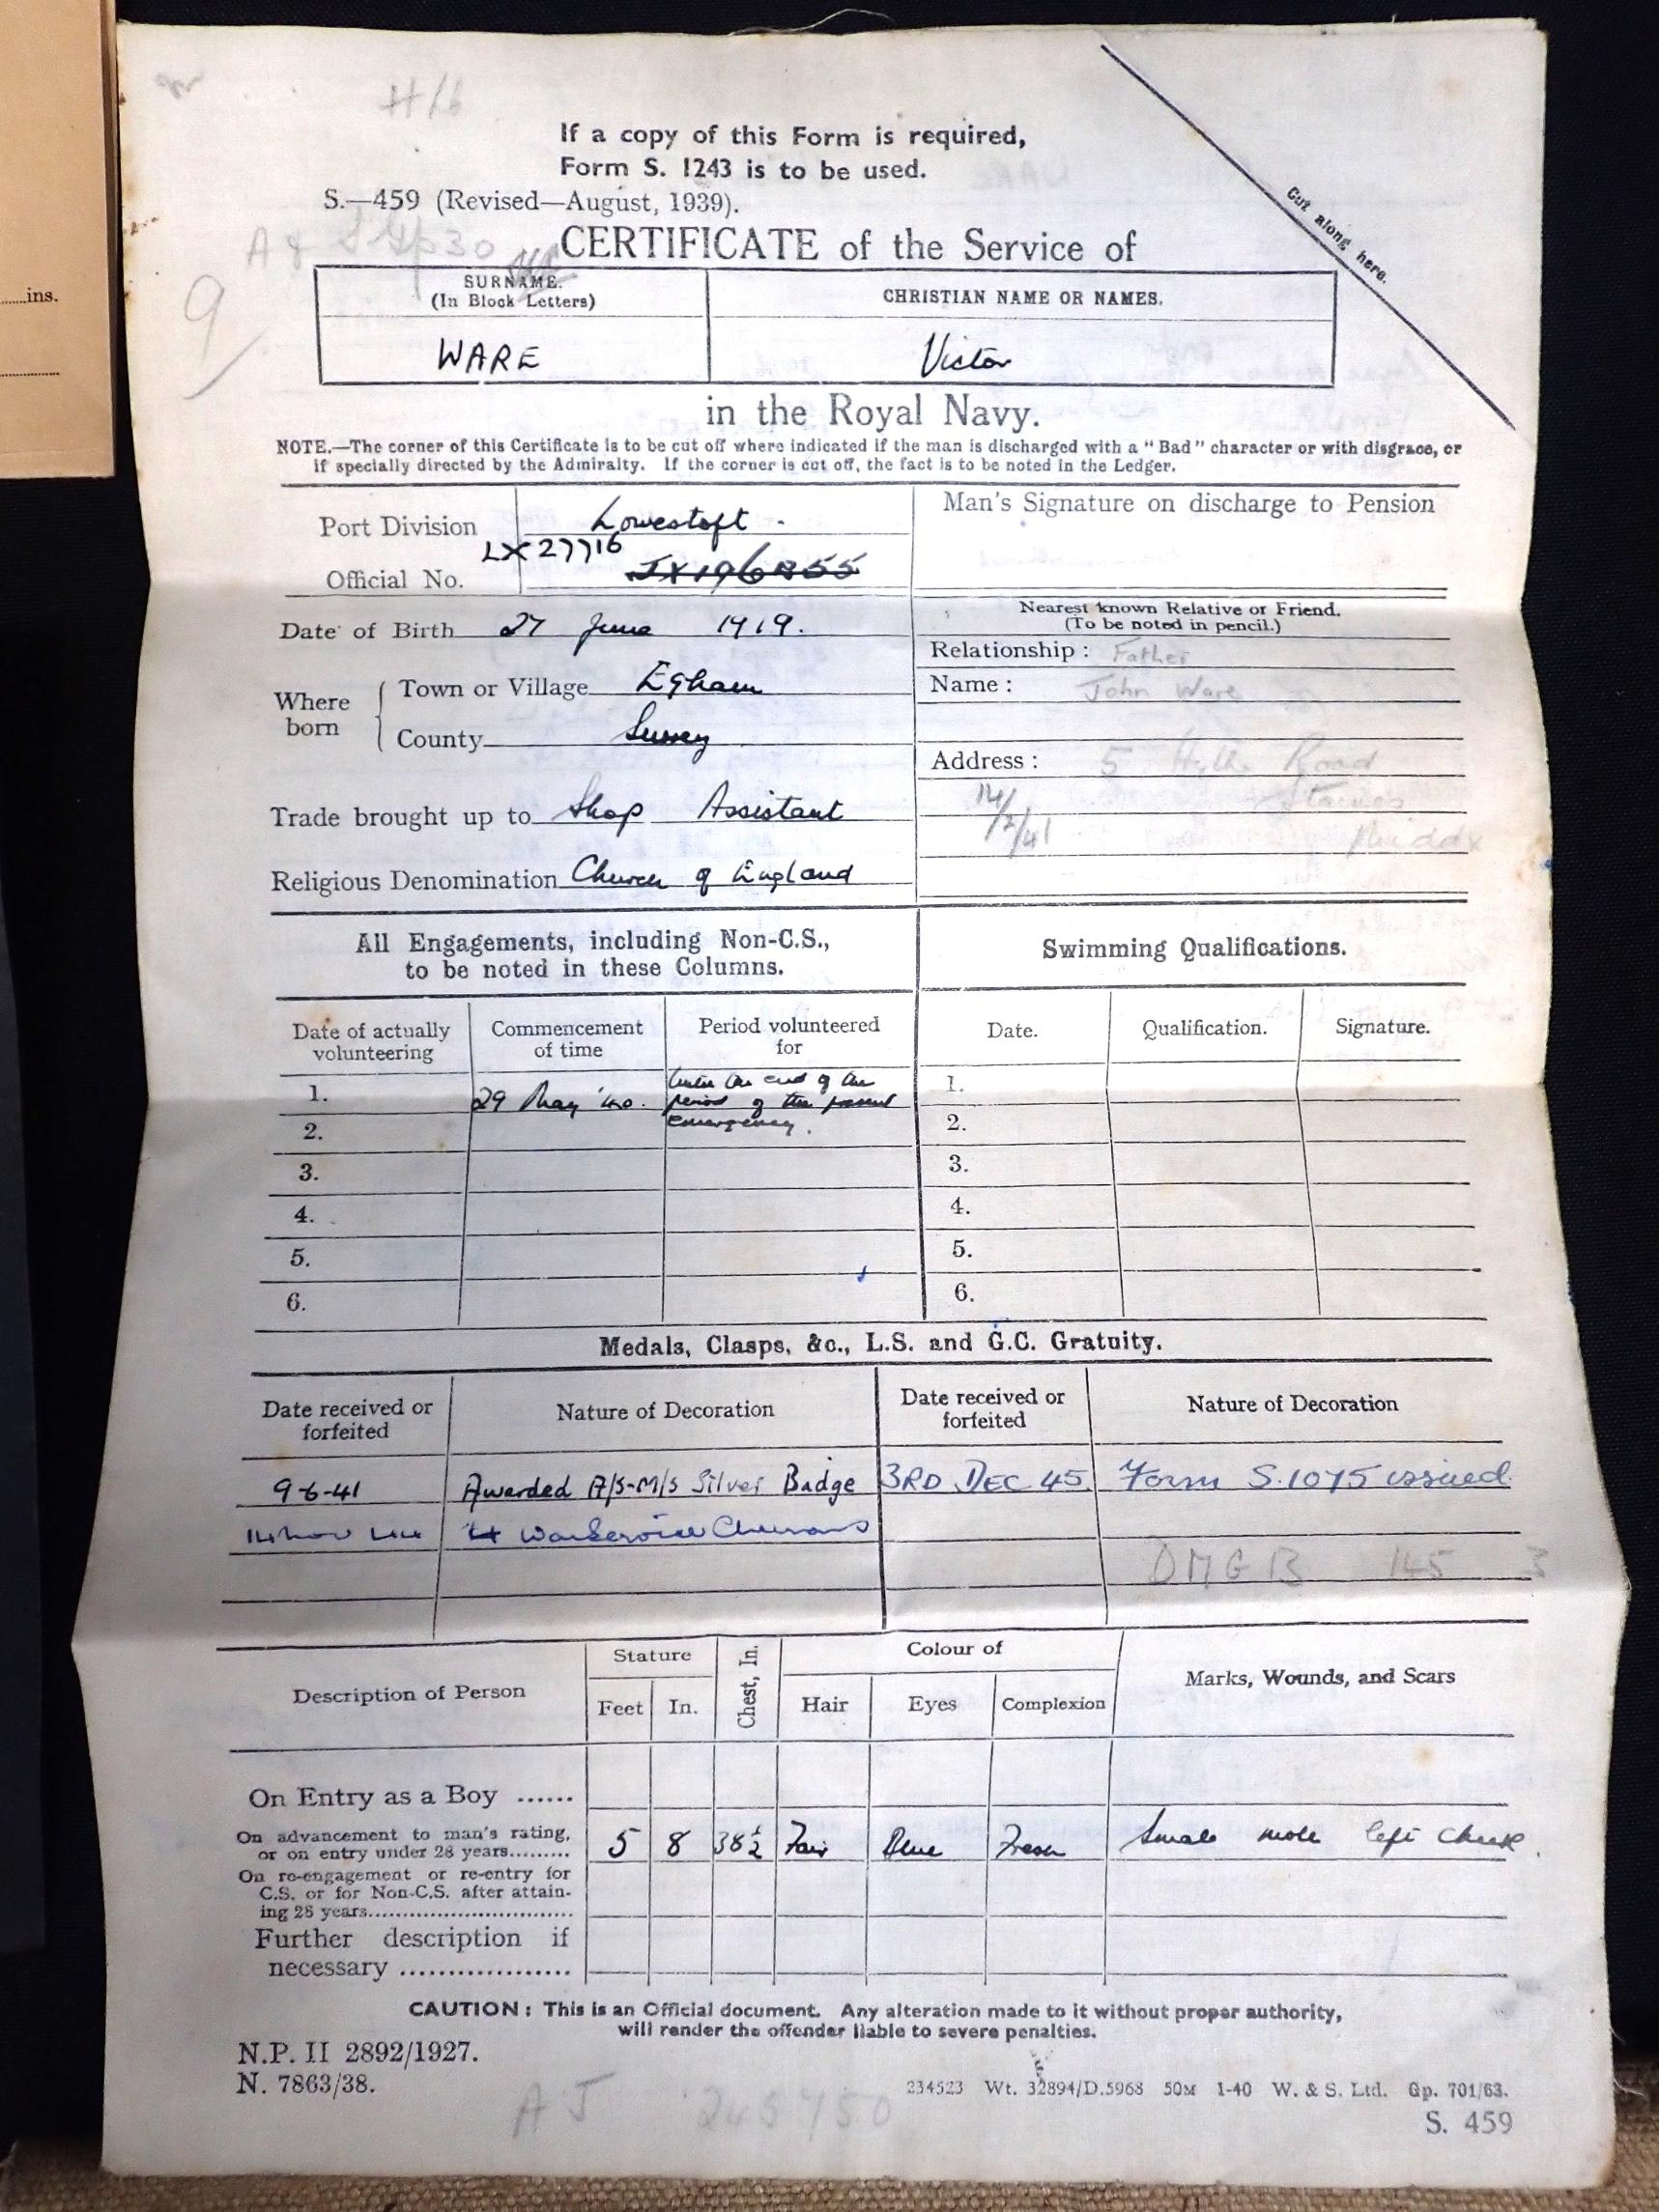 ins.
H/6
If a copy of this Form is required,
Form S. 1243 is to be used.
S.—459 (Revised—August, 1939).
A & S Gp 30
9
Cut along here.
CERTIFICATE of the Service of
SURNAME.
(In Block Letters)
CHRISTIAN NAME OR NAMES.
WARE
Victor
in the Royal Navy.
NOTE.—The corner of this Certificate is to be cut off where indicated if the man is discharged with a "Bad" character or with disgrace, or
if specially directed by the Admiralty. If the corner is cut off, the fact is to be noted in the Ledger.
Port Division Lowestoft.
LX 27716
Official No.
Man's Signature on discharge to Pension
Date of Birth 27 June 1919.
Where born
Town or Village Egham
County Surrey
Trade brought up to Shop Assistant
Religious Denomination Church of England
Nearest known Relative or Friend.
(To be noted in pencil.)
Relationship : Father
Name : John Ware
Address : 5 Hythe Road
Staines
Middx
14/2/41
All Engagements, including Non-C.S.,
to be noted in these Columns.
Swimming Qualifications.
Date of actually volunteering
Commencement of time
Period volunteered for
Date.
Qualification.
Signature.
1. 29 May '40. Until the end of the
period of the present
emergency.
2.
3.
4.
5.
6.
1.
2.
3.
4.
5.
6.
Medals, Clasps, &c., L.S. and G.C. Gratuity.
Date received or forfeited
Nature of Decoration
Date received or forfeited
Nature of Decoration
9-6-41 Awarded A/S-M/S Silver Badge 3RD DEC 45. Form S.1075 issued.
14 Nov 44 4 War Service Chevrons
DMGB 145 3
Description of Person
Stature
Feet
In.
Chest, In.
Colour of
Hair
Eyes
Complexion
Marks, Wounds, and Scars
On Entry as a Boy ......
On advancement to man's rating,
or on entry under 28 years.........
5 8 38½ Fair Blue Fresh Small mole left cheek.
On re-engagement or re-entry for
C.S. or for Non-C.S. after attain-
ing 28 years..............................
Further description if
necessary ..................
CAUTION : This is an Official document. Any alteration made to it without proper authority,
will render the offender liable to severe penalties.
N.P. II 2892/1927.
N. 7863/38.
234523 Wt. 32894/D.5968 50M 1-40 W. & S. Ltd. Gp. 701/63.
S. 459
AJ 245750